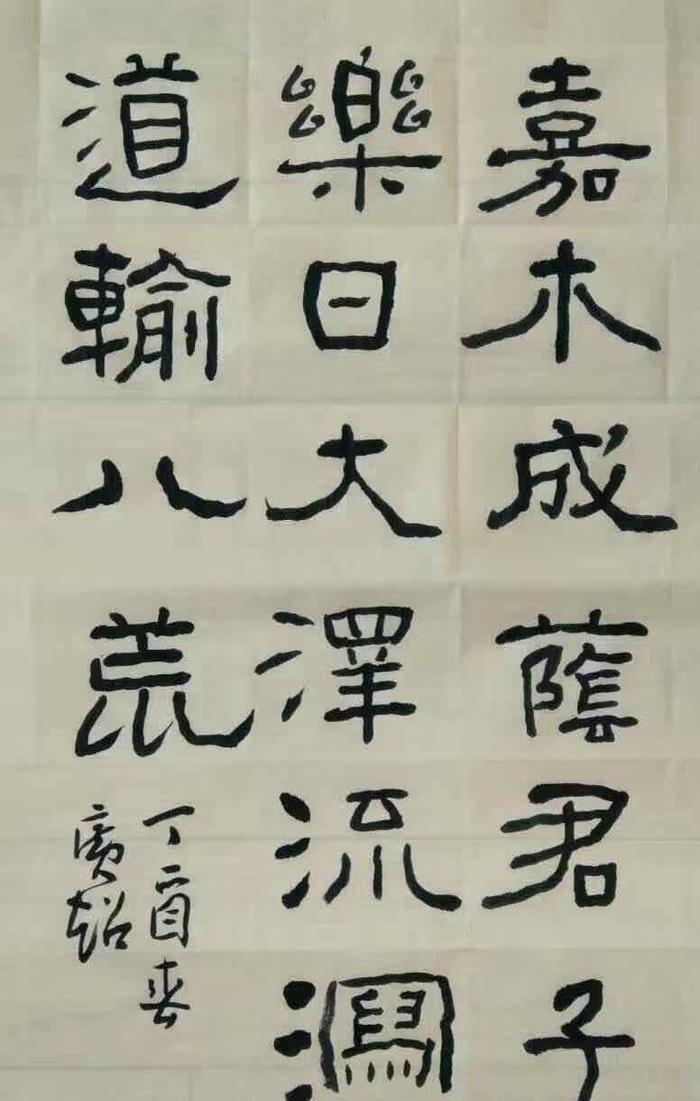 嘉木成蔭君子
樂日大澤流瀉
道輸八荒
丁酉春
廣超